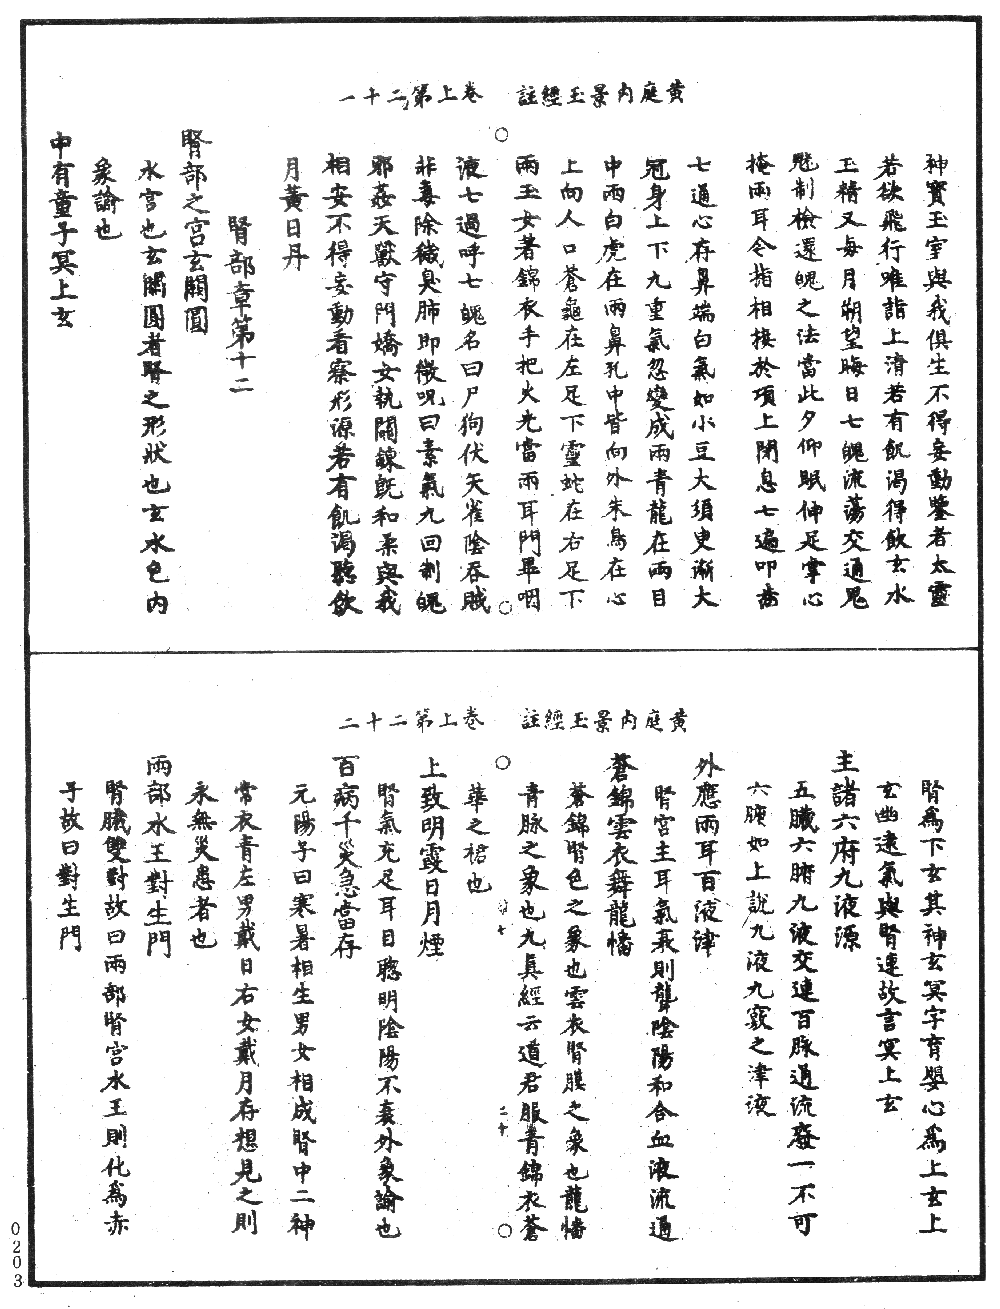 黃庭內景玉經註　卷上第二十一
神寶玉室與我俱生不得妄動鑒者太靈
若欲飛行唯詣上清若有飢渴得飲玄水
玉精又每月朔望晦日七魄流蕩交通鬼
魅制檢還魄之法當此夕仰眠伸足掌心
掩兩耳令指相接於項上閉息七遍叩齒
七通心存鼻端白氣如小豆大須臾漸大
冠身上下九重氣忽變成兩青龍在兩目
中兩白虎在兩鼻孔中皆向外朱鳥在心
上向人口蒼龜在左足下靈蛇在右足下
兩玉女著錦衣手把火光當兩耳門畢咽
液七過呼七魄名曰尸狗伏矢雀陰吞賊
非毒除穢臭肺即微呪曰素氣九回制魄
邪姦天獸守門嬌女執關鍊魄和柔與我
相安不得妄動看察形源若有飢渴聽飲
月黃日丹
腎部章第十二
腎部之宮玄闕圓
水宮也玄闕圓者腎之形狀也玄水色內
象論也
中有童子冥上玄
黃庭內景玉經註　卷上第二十二
腎為下玄其神玄冥字育嬰心為上玄上
玄幽遠氣與腎連故言冥上玄
主諸六府九液源
五臟六腑九液交連百脉通流廢一不可
六腑如上說九液九竅之津液
外應兩耳百液津
腎宮主耳氣衰則聾陰陽和合血液流通
蒼錦雲衣舞龍幡
蒼錦腎色之象也雲衣腎膜之象也龍幡
青脉之象也九真經云道君服青錦衣蒼
華之裙也
上致明霞日月煙
腎氣充足耳目聰明陰陽不衰外象論也
百病千災急當存
元陽子曰寒暑相生男女相成腎中二神
常衣青左男戴日右女戴月存想見之則
永無災患者也
兩部水王對生門
腎臟雙對故曰兩部腎宮水王則化為赤
子故曰對生門
0203